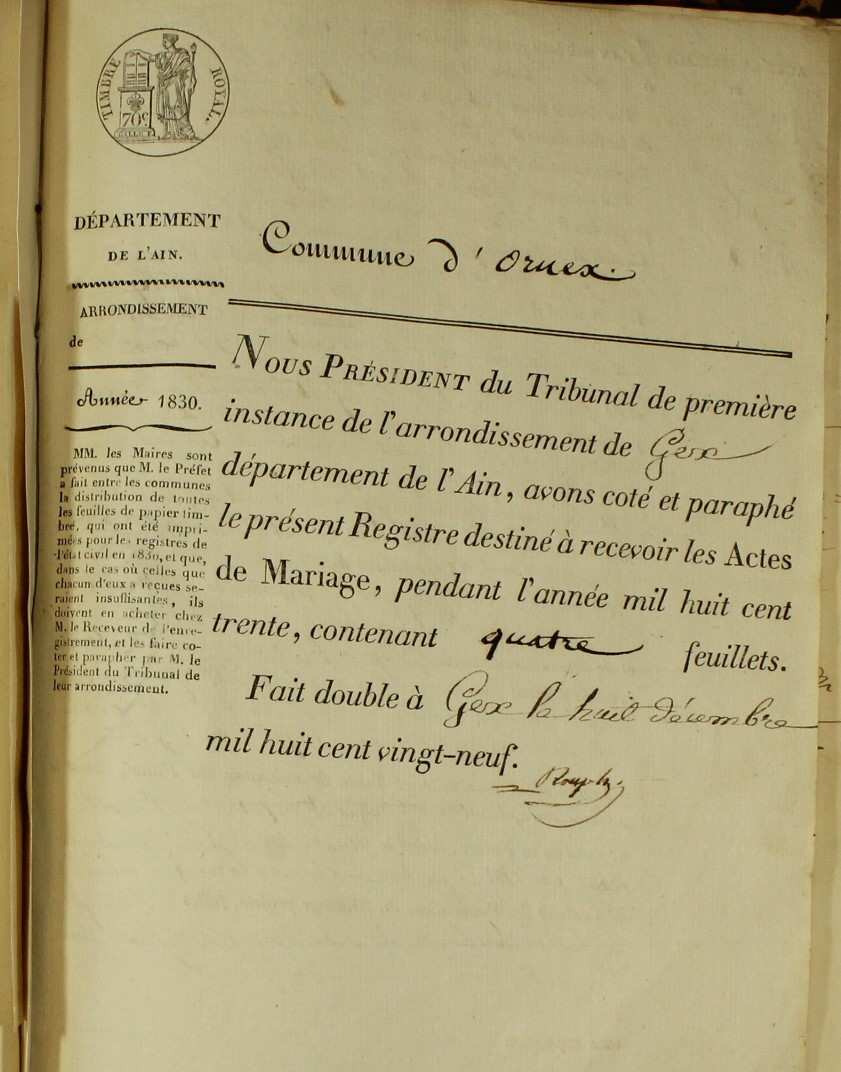 TIMBRE ROYAL.
70c
DÉPARTEMENT
DE L'AIN.
ARRONDISSEMENT
de
Année 1830.
MM. les Maires sont
prévenus que M. le Préfet
a fait entre les communes
la distribution de toutes
les feuilles de papier tim-
bré, qui ont été impri-
mées pour les registres de
l'état civil en 1830, et que,
dans le cas où celles que
chacun d'eux a reçues se-
raient insuffisantes, ils
doivent en acheter chez
M. le Receveur de l'enre-
gistrement, et les faire co-
ter et parapher par M. le
Président du Tribunal de
leur arrondissement.
Commune d'Ornex.
NOUS PRÉSIDENT du Tribunal de première
instance de l'arrondissement de Gex
département de l'Ain, avons coté et paraphé
le présent Registre destiné à recevoir les Actes
de Mariage, pendant l'année mil huit cent
trente, contenant quatre feuillets.
Fait double à Gex le huit décembre
mil huit cent vingt-neuf.